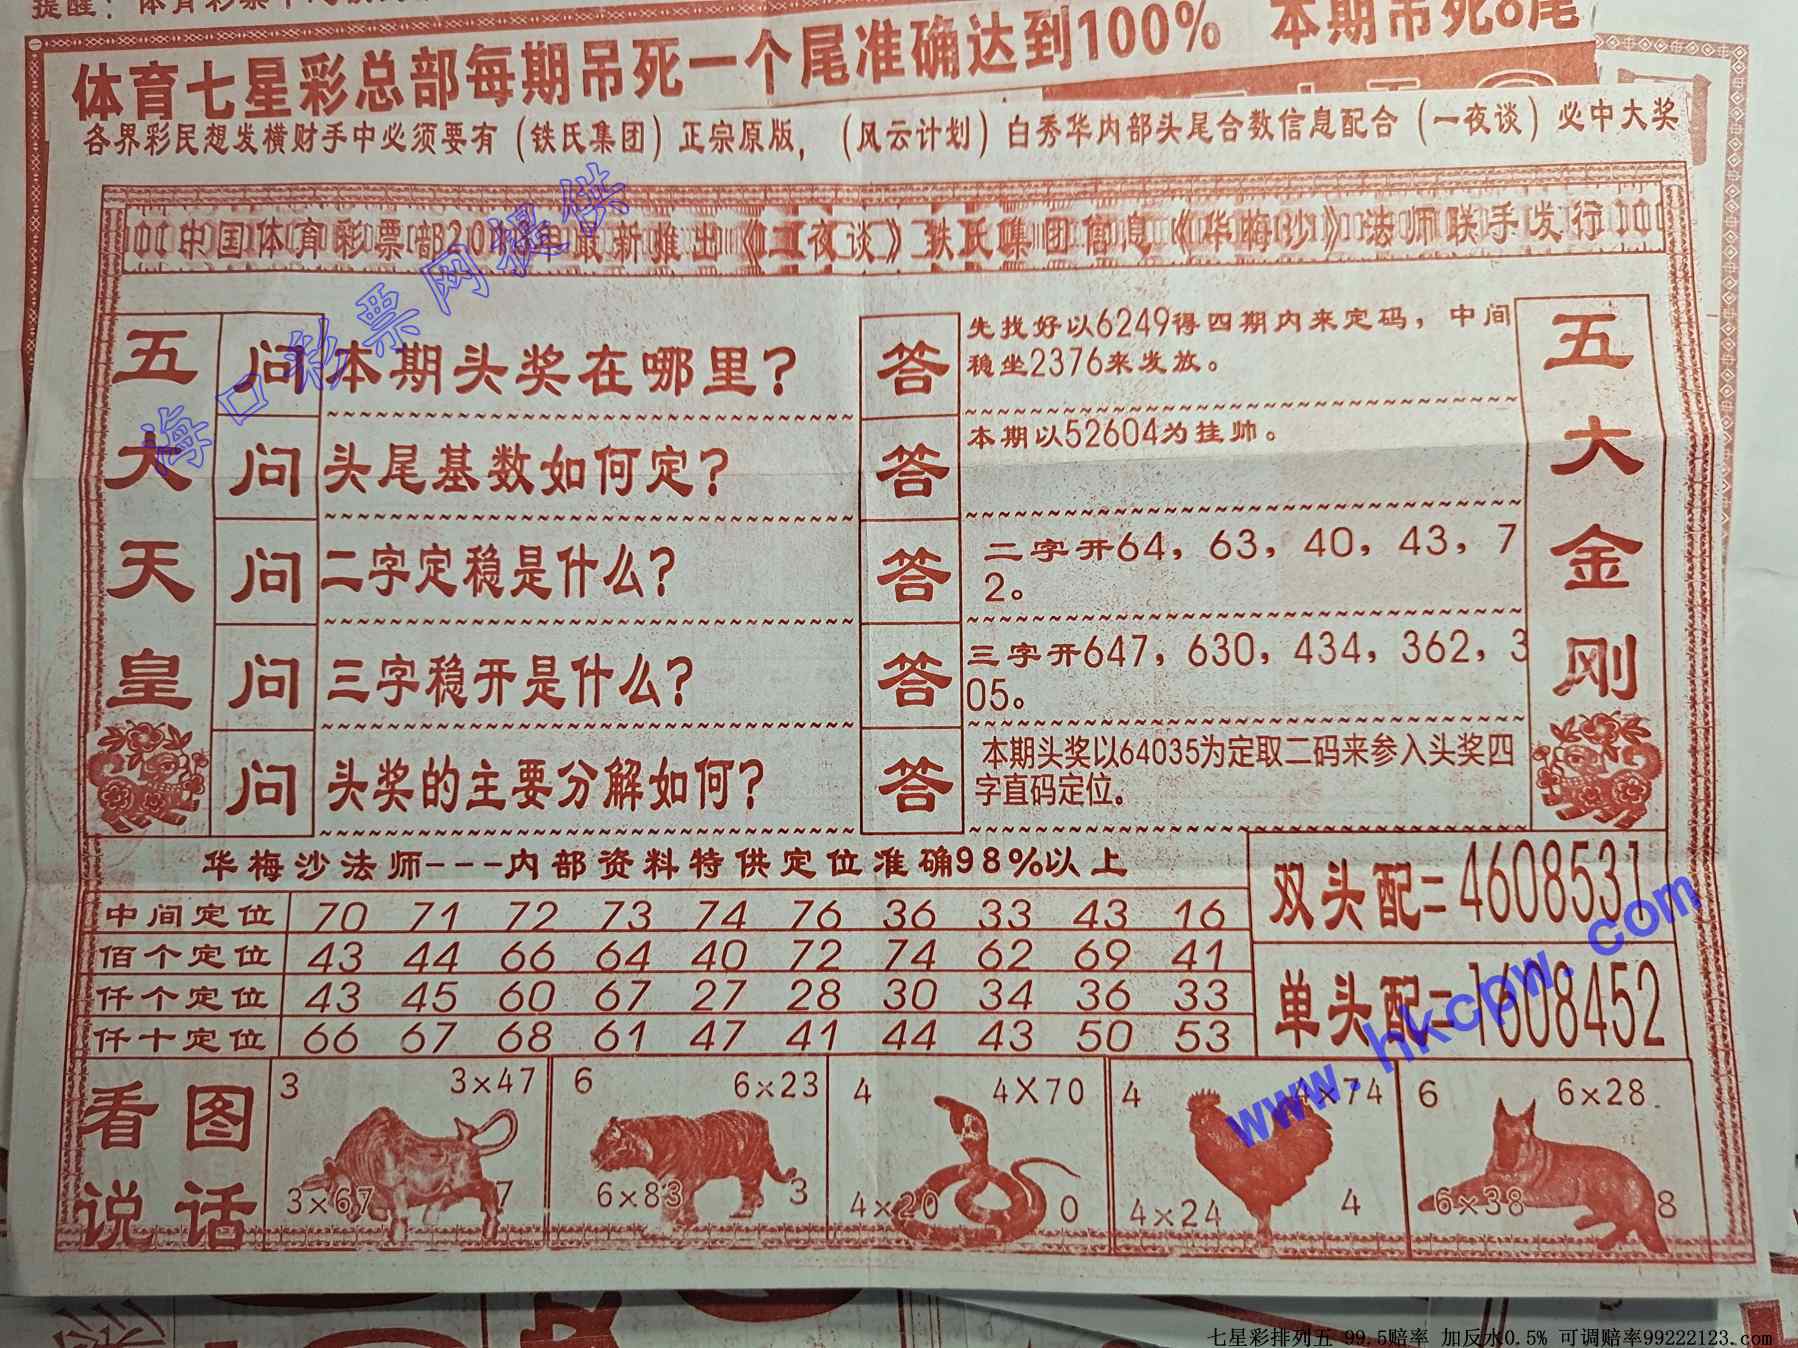 体育七星彩总部每期吊死一个尾准确达到100% 本期吊死8尾
各界彩民想发横财手中必须要有（铁氏集团）正宗原版，（风云计划）白秀华内部头尾合数信息配合（一夜谈）必中大奖
中国体育彩票部 最新推出《 夜谈》铁氏集团信息《华梅沙》法师联手发行
海口彩票网提供
五大天皇
问 本期头奖在哪里？
答 先找好以6249得四期内来定码，中间
稳坐2376来发放。
问 头尾基数如何定？
答 本期以52604为挂帅。
问 二字定稳是什么？
答 二字开64，63，40，43，7
2。
问 三字稳开是什么？
答 三字开647，630，434，362，3
05。
问 头奖的主要分解如何？
答 本期头奖以64035为定取二码来参入头奖四
字直码定位。
五大金刚
华梅沙法师---内部资料特供定位准确98%以上
中间定位 70 71 72 73 74 76 36 33 43 16
佰个定位 43 44 66 64 40 72 74 62 69 41
仟个定位 43 45 60 67 27 28 30 34 36 33
仟十定位 66 67 68 61 47 41 44 43 50 53
双头配二4608531
单头配二1608452
www.hkcpw.com
看图
说话
3 3×47
3×67 7
6 6×23
6×83 3
4 4X70
4×20 0
4 4×74
4×24 4
6 6×28
6×38 8
七星彩排列五 99.5赔率 加反水0.5% 可调赔率99222123.com